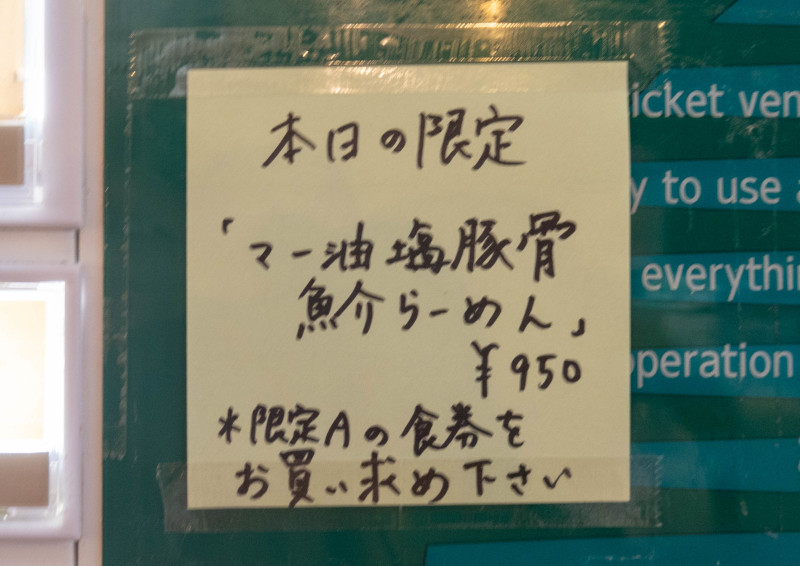 本日の限定
「マー油塩豚骨
魚介らーめん」
¥950
*限定Aの食券を
お買い求め下さい
icket ven
y to use a
everythin
operation